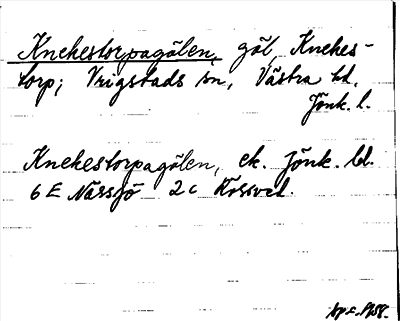 Knekestorpagölen, göl, Knekes-
torp; Vrigstads sn, Västra hd,
Jönk. l.
Knekestorpagölen, ek. Jönk. bl.
6 E Nässjö 2 c